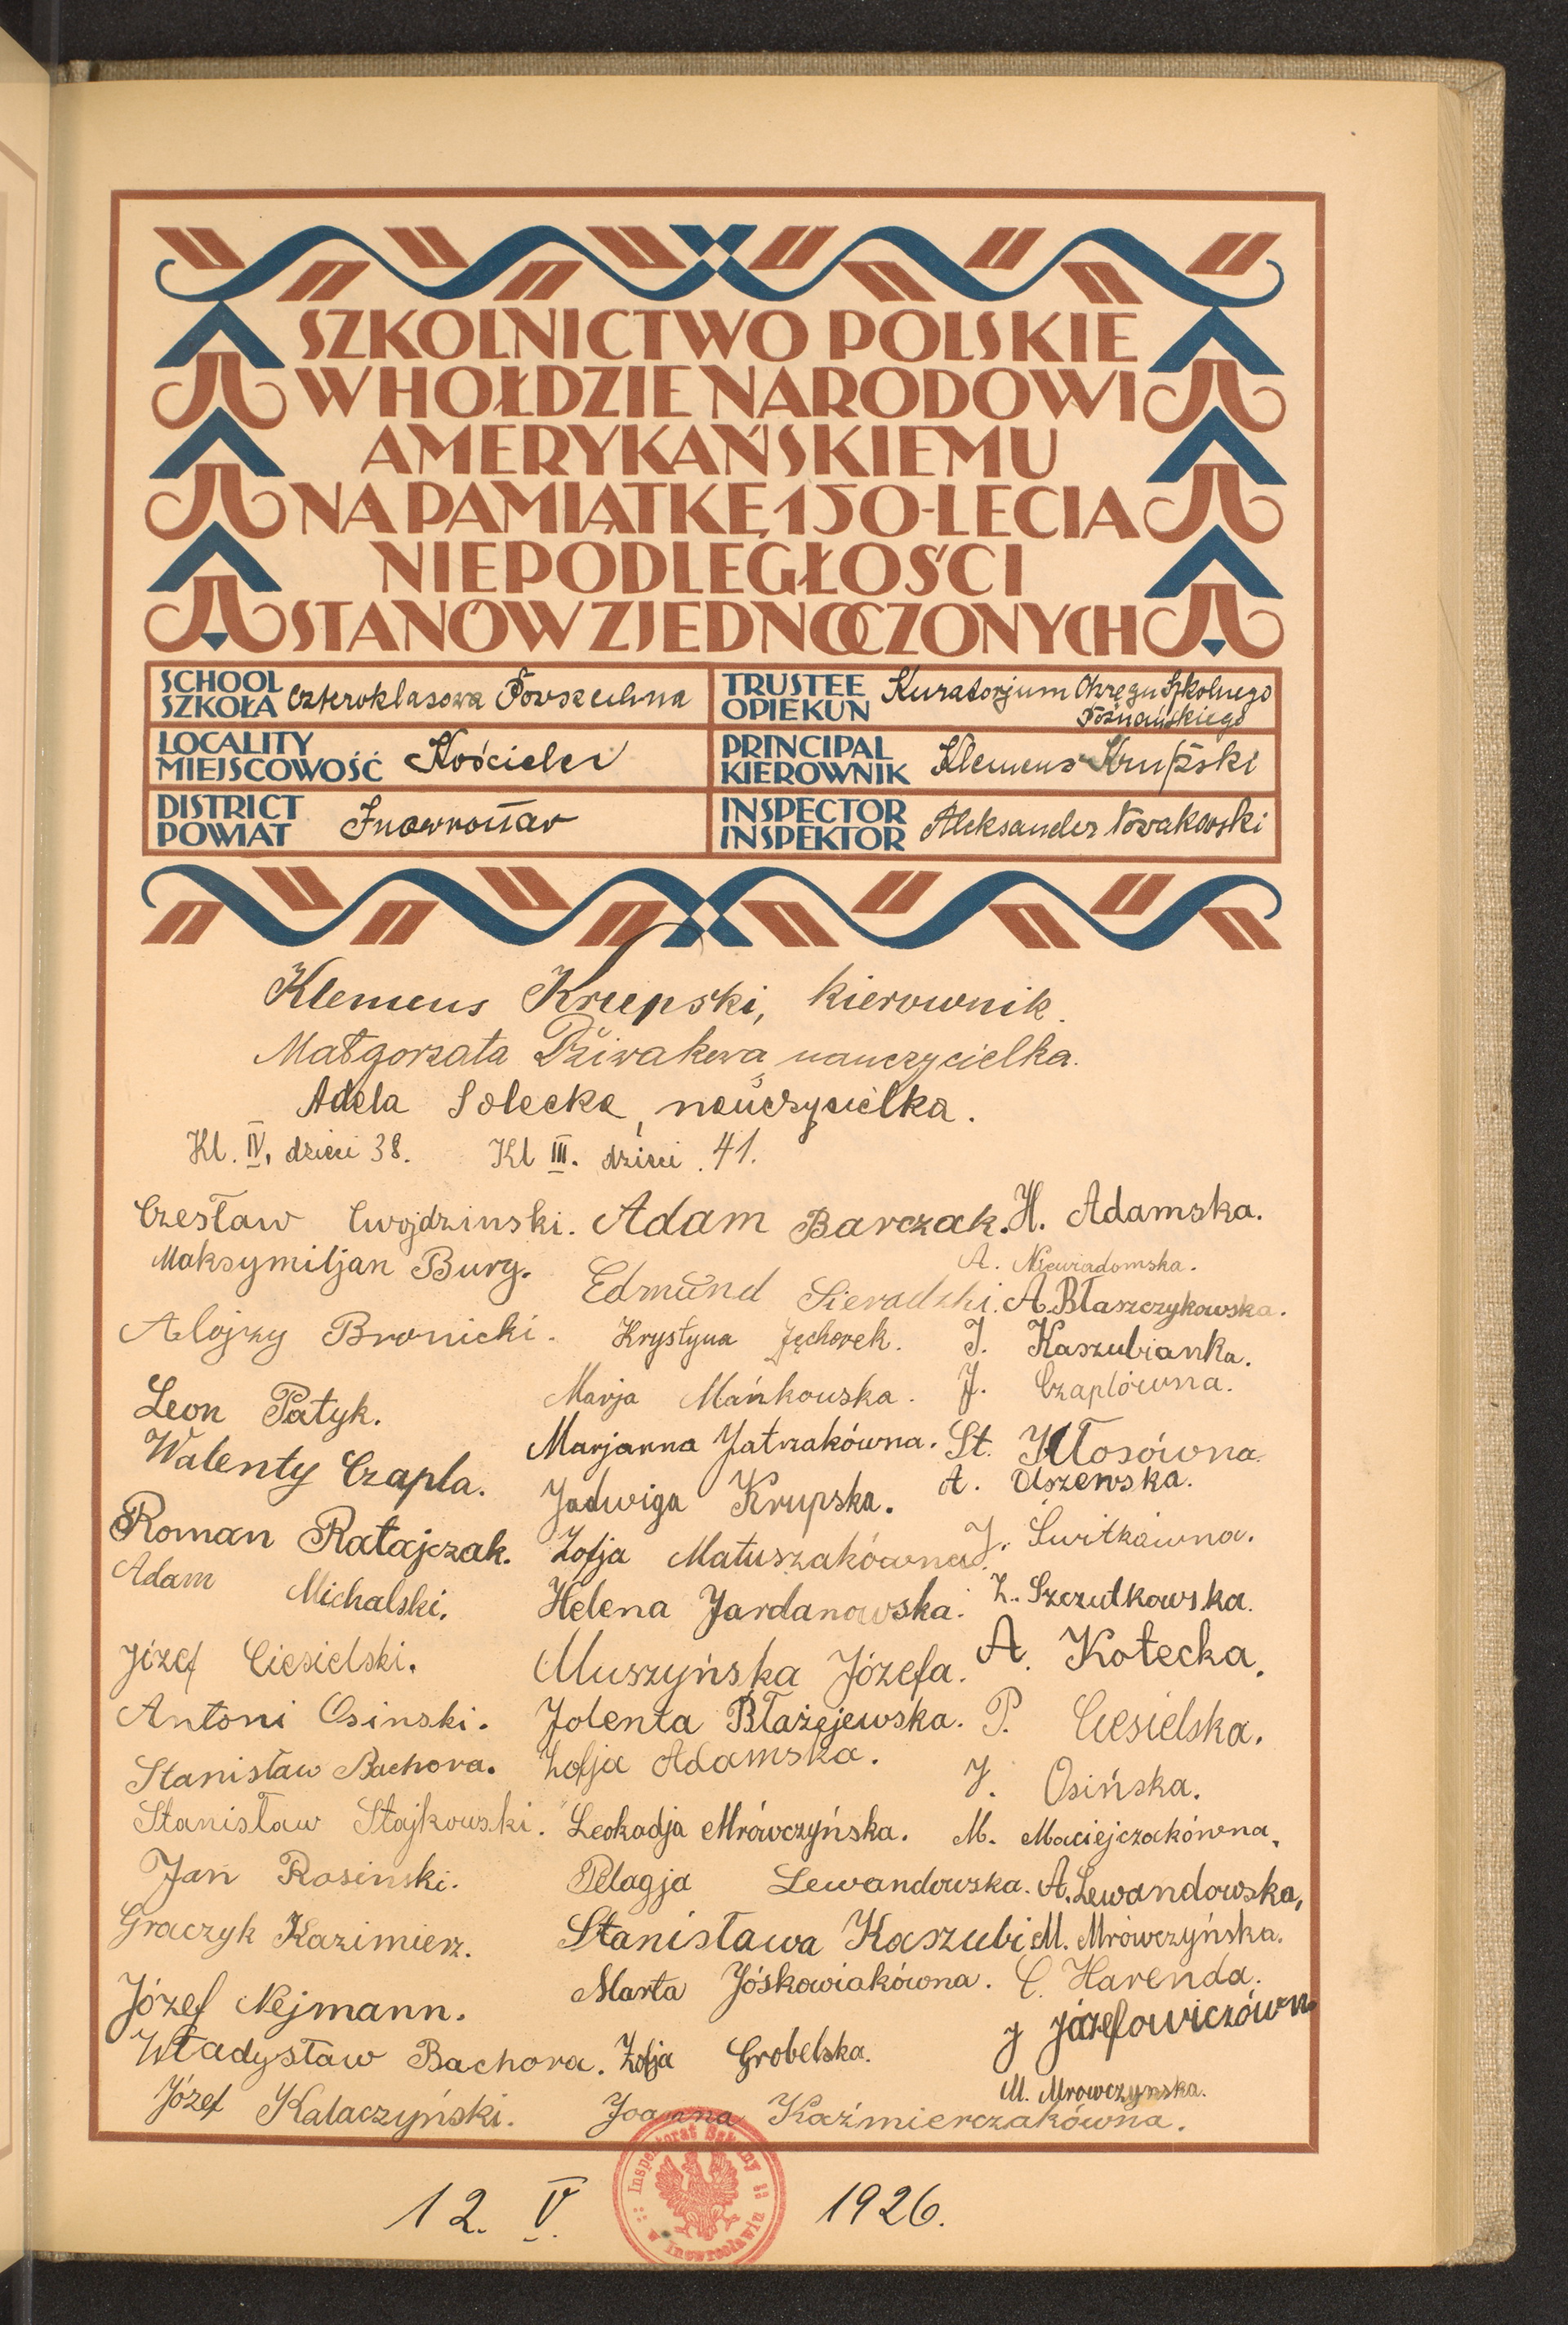 SZKOLNICTWO POLSKIE
W HOŁDZIE NARODOWI
AMERYKAŃSKIEMU
NA PAMIĄTKĘ 150-LECIA
NIEPODLEGŁOŚCI
STANÓW ZJEDNOCZONYCH
SCHOOL
SZKOŁA Czteroklasowa Powszechna
TRUSTEE
OPIEKUN Kuratorjum Okręgu Szkolnego
Poznańskiego
LOCALITY
MIEJSCOWOŚĆ Kościelec
PRINCIPAL
KIEROWNIK Klemens Krupski
DISTRICT
POWIAT Inowrocław
INSPECTOR
INSPEKTOR Aleksander Nowakowski
Klemens Krupski, kierownik.
Małgorzata nauczycielka.
Adela Solecka, nauczycielka.
Kl. IV, dzieci 38. Kl III. dzieci . 41.
Czesław Cwojdzinski.
Maksymiljan Burg.
Alojzy Bronicki.
Leon Patyk.
Walenty Czapla.
Roman Ratajczak.
Adam Michalski.
Józef Ciesielski.
Antoni Osinski.
Stanisław Bachora.
Stanisław Stajkowski.
Jan Rosinski.
Graczyk Kazimierz.
Józef Nejmann.
Władysław Bachora.
Józef Kalaczyński.
Adam Barczak.
Edmund Sieradzki.
Krystyna Jęchorek.
Marja Mańkouska.
Marjanna Jatrzakówna.
Jadwiga Krupska.
Zofja Matuszakówna.
Helena Jardanowska.
Muszyńska Józefa.
Jolenta Błażejewska.
Zofja Adamska.
Leokadja Mrówczyńska.
Pelagja Lewandowska.
Stanisława Kaszubi
Marta Jóskowiakówna.
Zofja Grobelska.
Joanna Kaźmierczakówna.
H. Adamska.
A. Niewiadomska.
A. Błaszczykowska.
J. Kaszubianka.
J. Czaplówna.
St. Kłosówna.
A. Olszewska.
J. Świtkówna.
Z. Szczutkowska.
A. Kotecka.
P. Ciesielska.
J. Osińska.
M. Maciejczakówna,
A. Lewandowska,
M. Mrówczyńska.
C. Harenda.
J Józefowiczówn
M. Mrowczynska.
Inspektorat Szkolny
w Inowrocławiu
12. V. 1926.